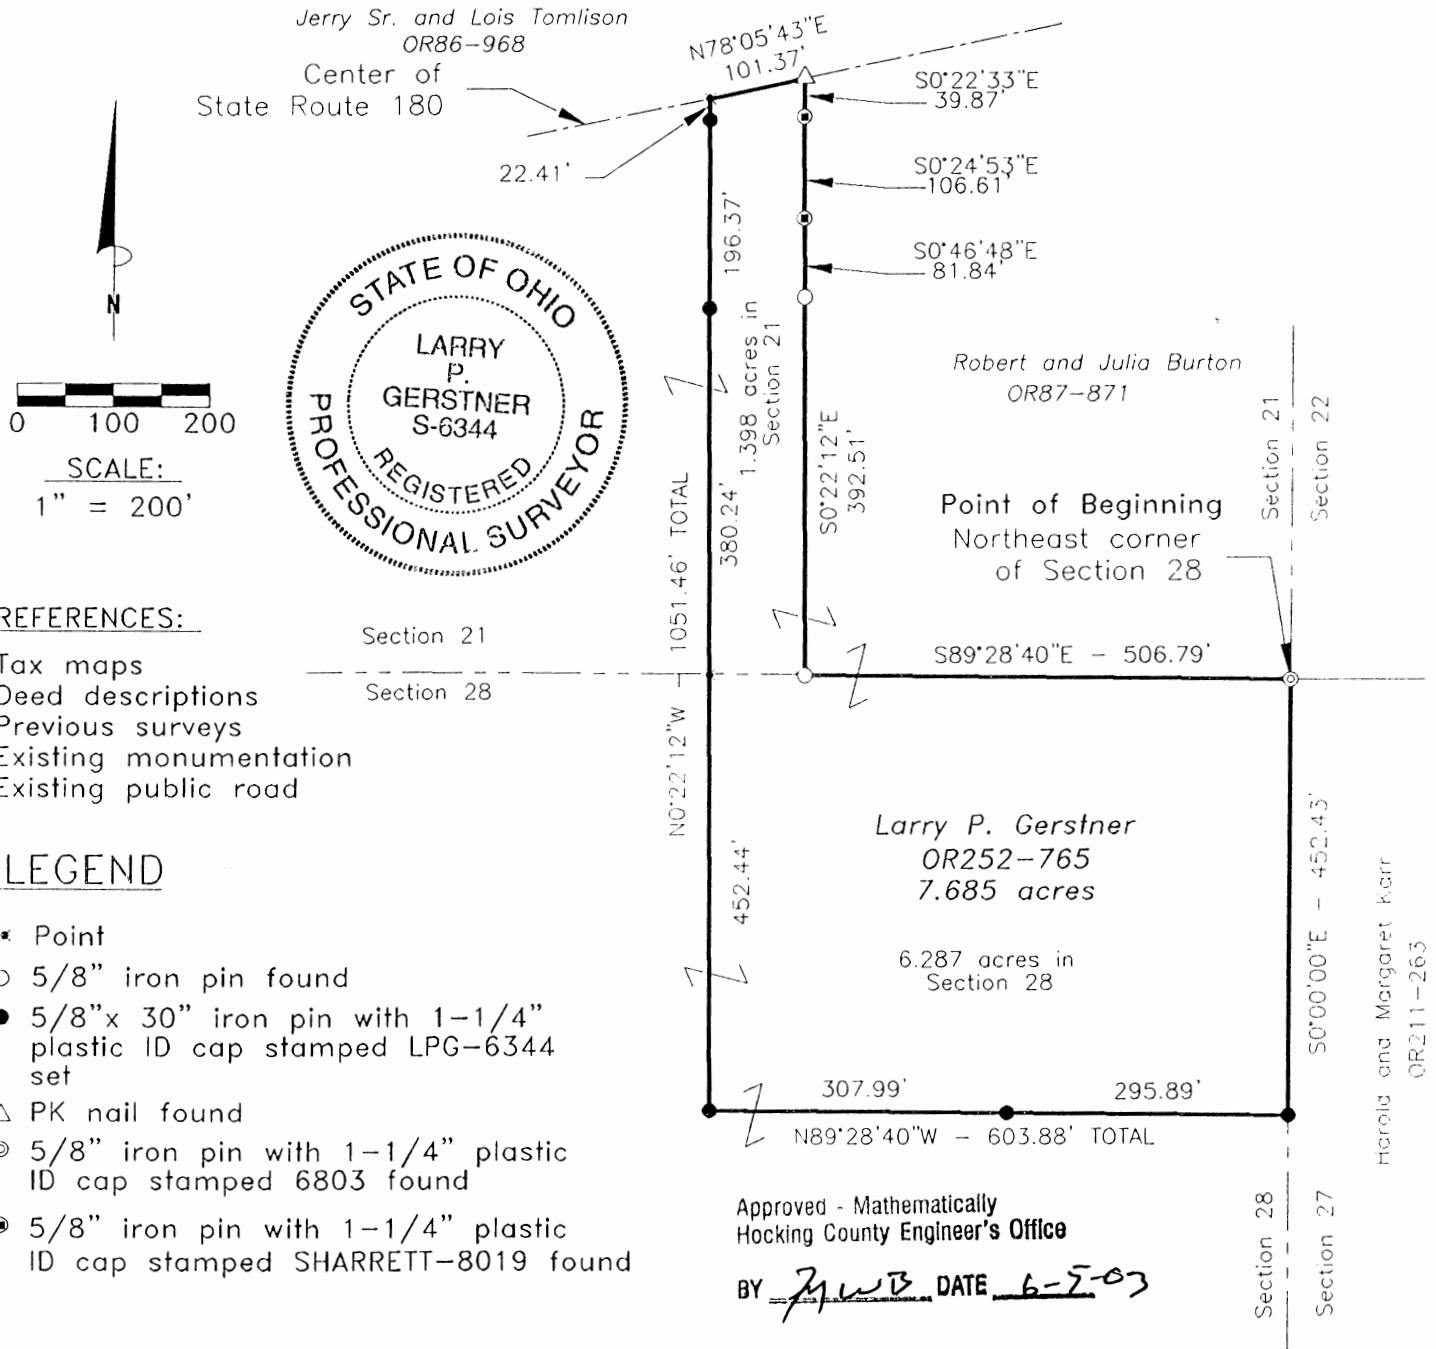 Jerry Sr. and Lois Tomlison
OR86-968
Center of
State Route 180
N78°05'43"E
101.37'
S0°22'33"E
39.87'
22.41'
S0°24'53"E
106.61'
S0°46'48"E
81.84'
196.37'
N
0 100 200
SCALE:
1" = 200'
STATE OF OHIO
LARRY
P.
GERSTNER
S-6344
REGISTERED
PROFESSIONAL SURVEYOR
1.398 acres in
Section 21
380.24'
S0°22'12"E
392.51'
Robert and Julia Burton
OR87-871
Section 21
Section 22
Point of Beginning
Northeast corner
of Section 28
N0°22'12"W - 1051.46' TOTAL
Section 21
Section 28
S89°28'40"E - 506.79'
REFERENCES:
Tax maps
Deed descriptions
Previous surveys
Existing monumentation
Existing public road
452.44'
Larry P. Gerstner
OR252-765
7.685 acres
6.287 acres in
Section 28
S0°00'00"E - 452.43'
Harold and Margaret Karr
OR211-263
LEGEND
Point
5/8" iron pin found
5/8"x 30" iron pin with 1-1/4"
plastic ID cap stamped LPG-6344
set
PK nail found
5/8" iron pin with 1-1/4" plastic
ID cap stamped 6803 found
5/8" iron pin with 1-1/4" plastic
ID cap stamped SHARRETT-8019 found
307.99'
295.89'
N89°28'40"W - 603.88' TOTAL
Approved - Mathematically
Hocking County Engineer's Office
BY DATE 6-5-03
Section 28
Section 27